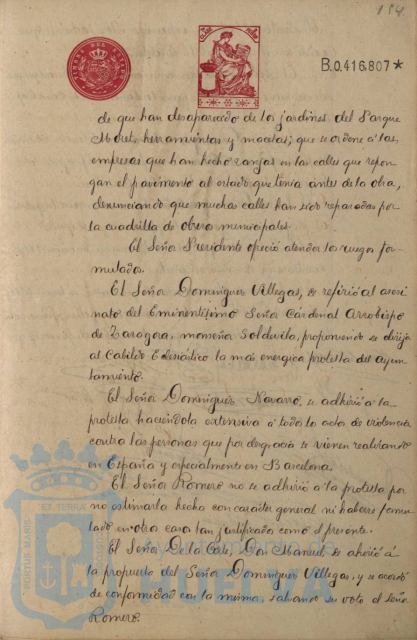 154.
B.0.416.807*
de que han desaparecido de los jardines del Parque
Moret, herramientas y macetas; que se ordene á las
empresas que han hecho zanjas en las calles que repon-
gan el pavimento al estado que tenia antes de la obra,
denunciando que muchas calles han sido reparadas por
la cuadrilla de obras municipales.
El Señor Presidente ofreció atender los ruegos for-
mulados.
El Señor Dominguez Villegas, se refirió al asesi-
nato del Eminentisimo Señor Cardenal Arzobispo
de Zaragoza, monseñor Soldevila, proponiendo se dirija
al Cabildo Eclesiástico la más energica protesta del Ayun-
tamiento.
El Señor Dominguez Navarro, se adhirió á la
protesta haciendola extensiva á todo los actos de violencia
contra las personas que por desgracia se vienen realizando
en España y especialmente en Barcelona.
El Señor Romero no se adhirió á la protesta por
no estimarla hecha con caracter general ni haberse formu-
lado en otros casos tan justificados como el presente.
El Señor De la Corte, Don Manuel, se adhirió á
la propuesta del Señor Dominguez Villegas, y se acordó
de conformidad con la misma, salvando su voto el Señor
Romero.
PORTUS MARIS ET TERRAE